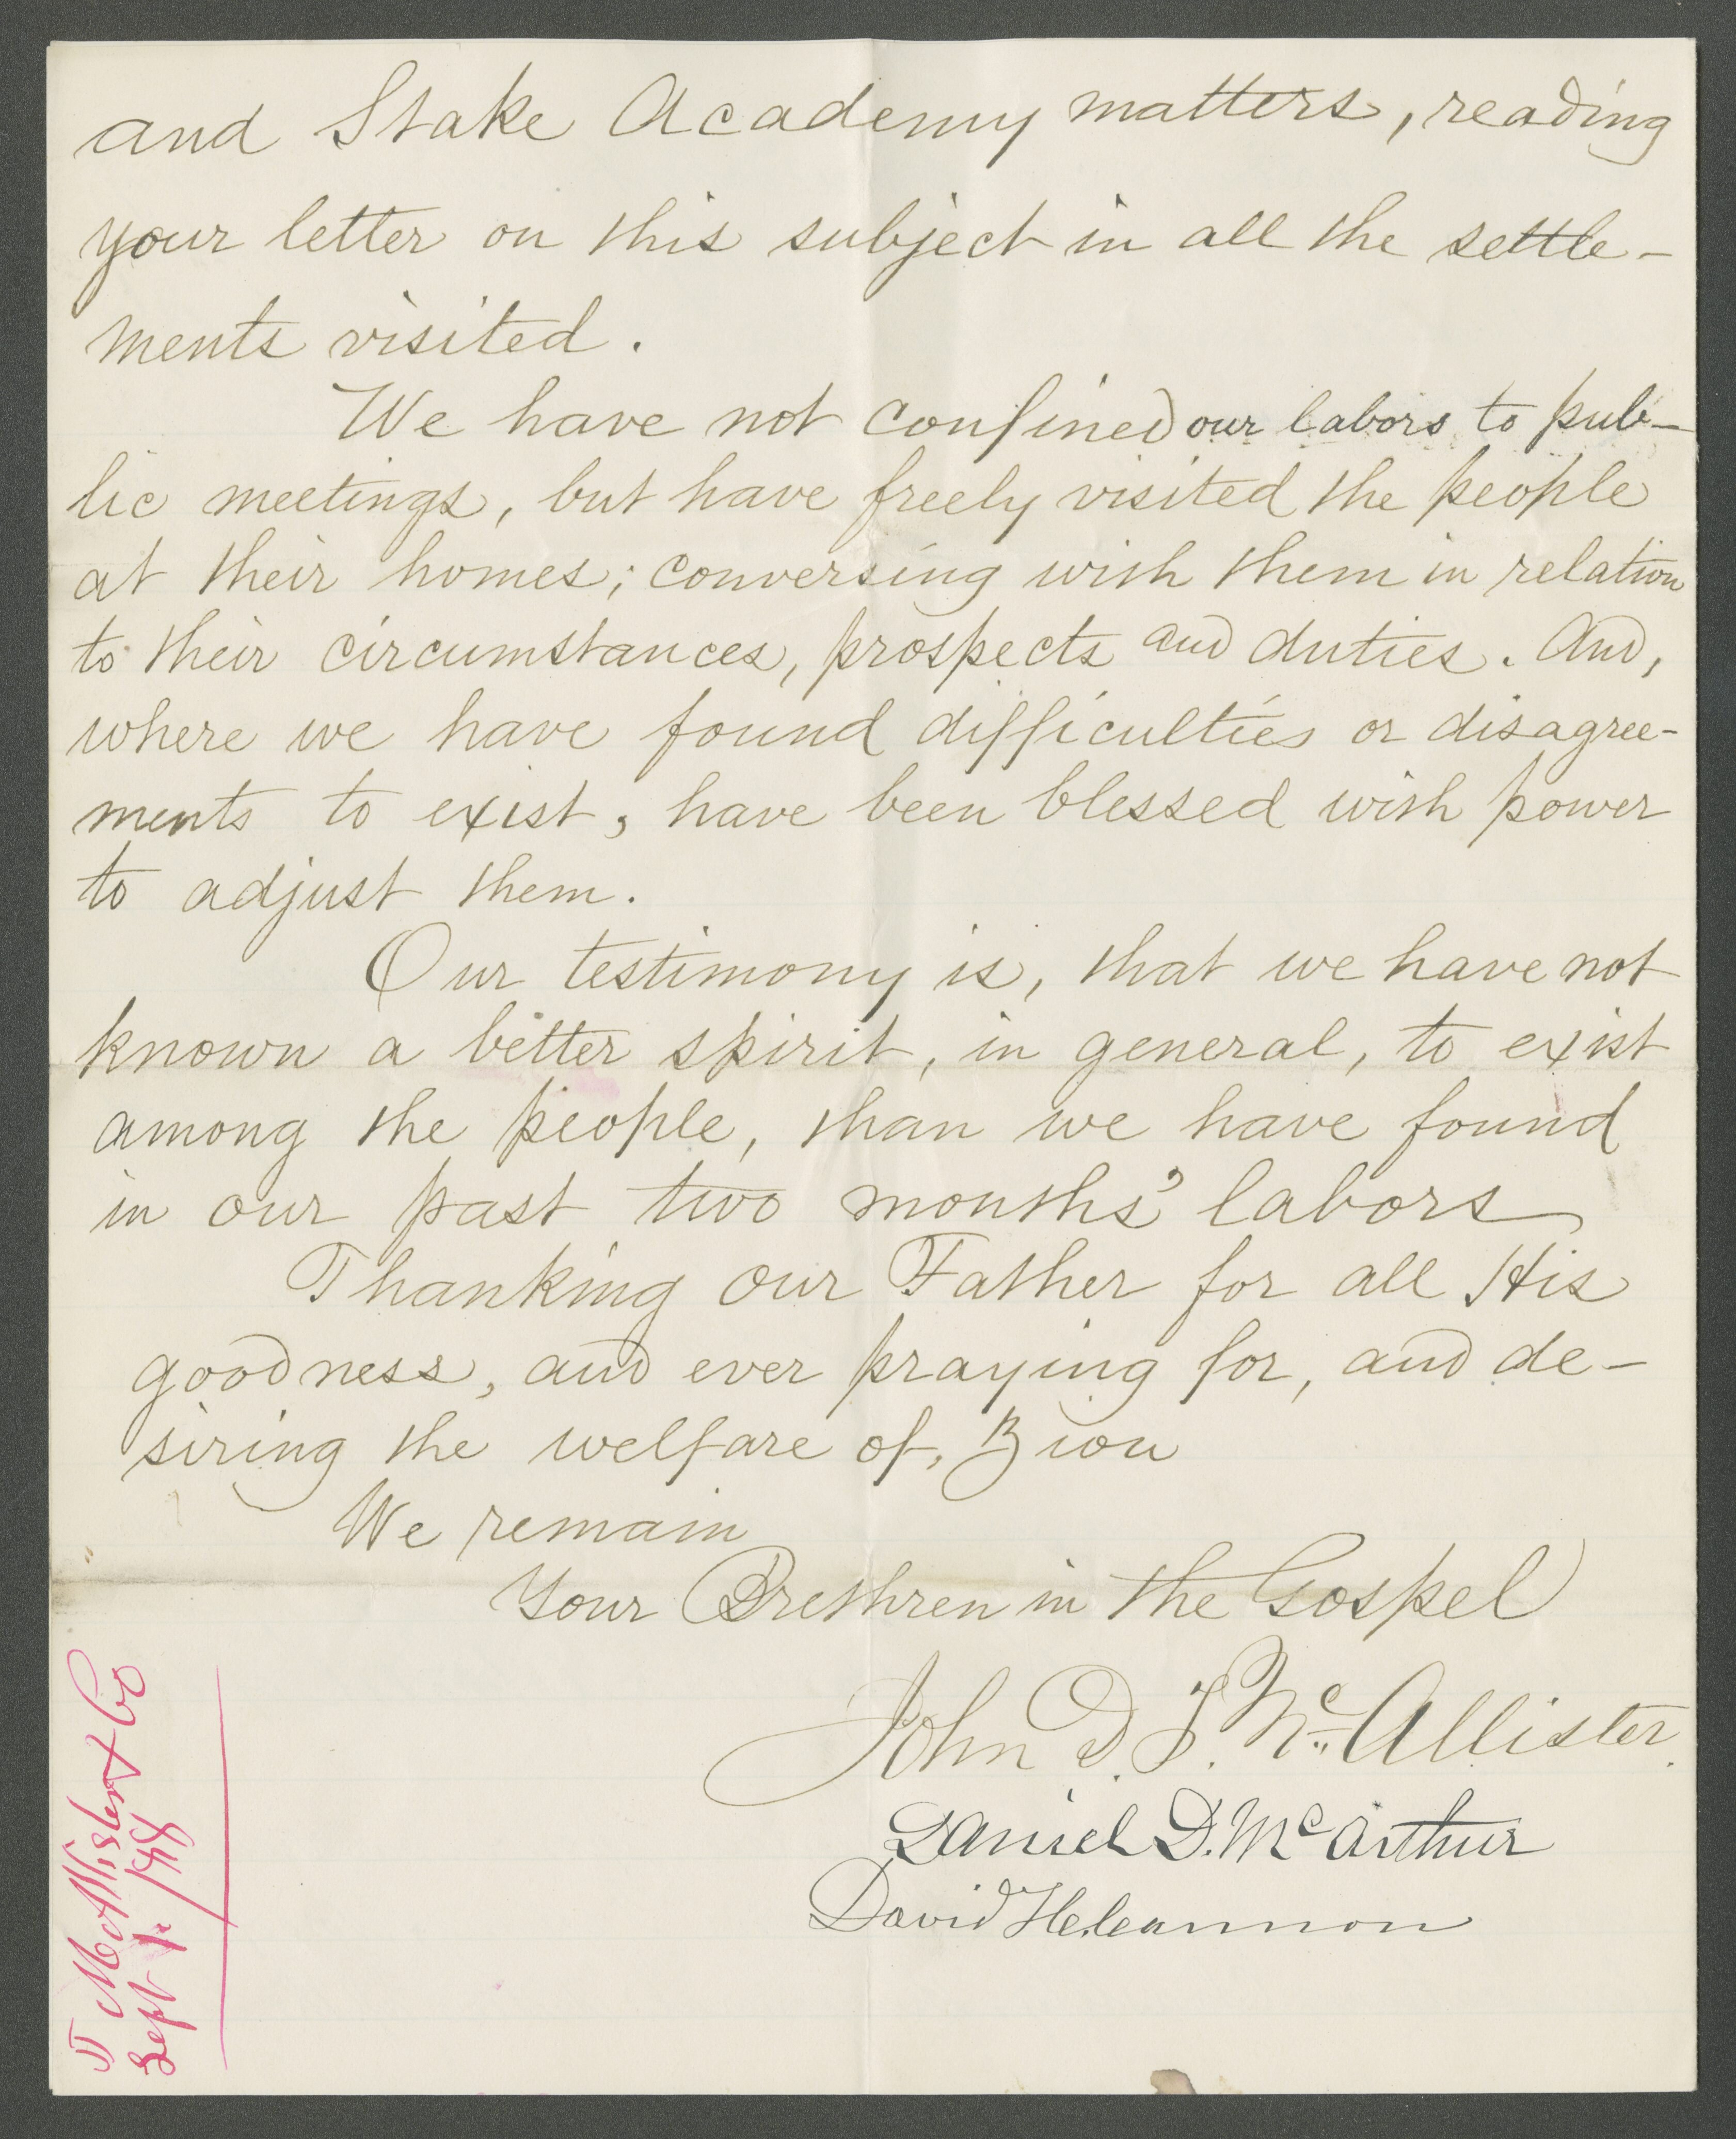 and Stake Academy matters, reading
your letter on this subject in all the settle-
ments visited.
We have not confined our labors to pub-
lic meetings, but have freely visited the people
at their homes; conversing with them in relation
to their circumstances, prospects and duties. And,
where we have found difficulties or disagree-
ments to exist, have been blessed with power
to adjust them.
Our testimony is, that we have not
known a better spirit, in general, to exist
among the people, than we have found
in our past two months' labors
Thanking our Father for all His
goodness, and ever praying for, and de-
siring the welfare of, Zion
We remain
Your Brethren in the Gospel
John D. T. McAllister.
Daniel D. McArthur
David H. Cannon
McAllister & Co
Sept 1.